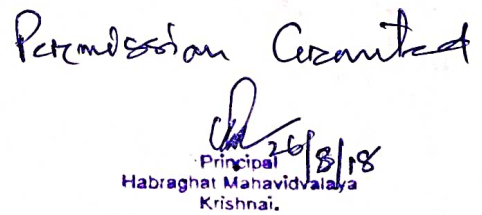 Permission Granted
26/8/18
Principal
Habraghat Mahavidyalaya
Krishnai.